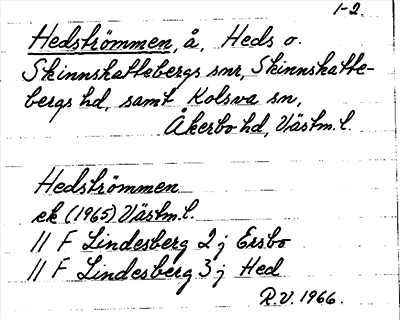 1-2.
Hedströmmen, å, Heds o.
Skinnskattebergs snr, Skinnskatte-
bergs hd, samt Kolsva sn,
Åkerbo hd, Västm. l.
Hedströmmen
ek (1965) Västm. l.
11 F Lindesberg 2 j Ersbo
11 F Lindesberg 3 j Hed
R.V. 1966.